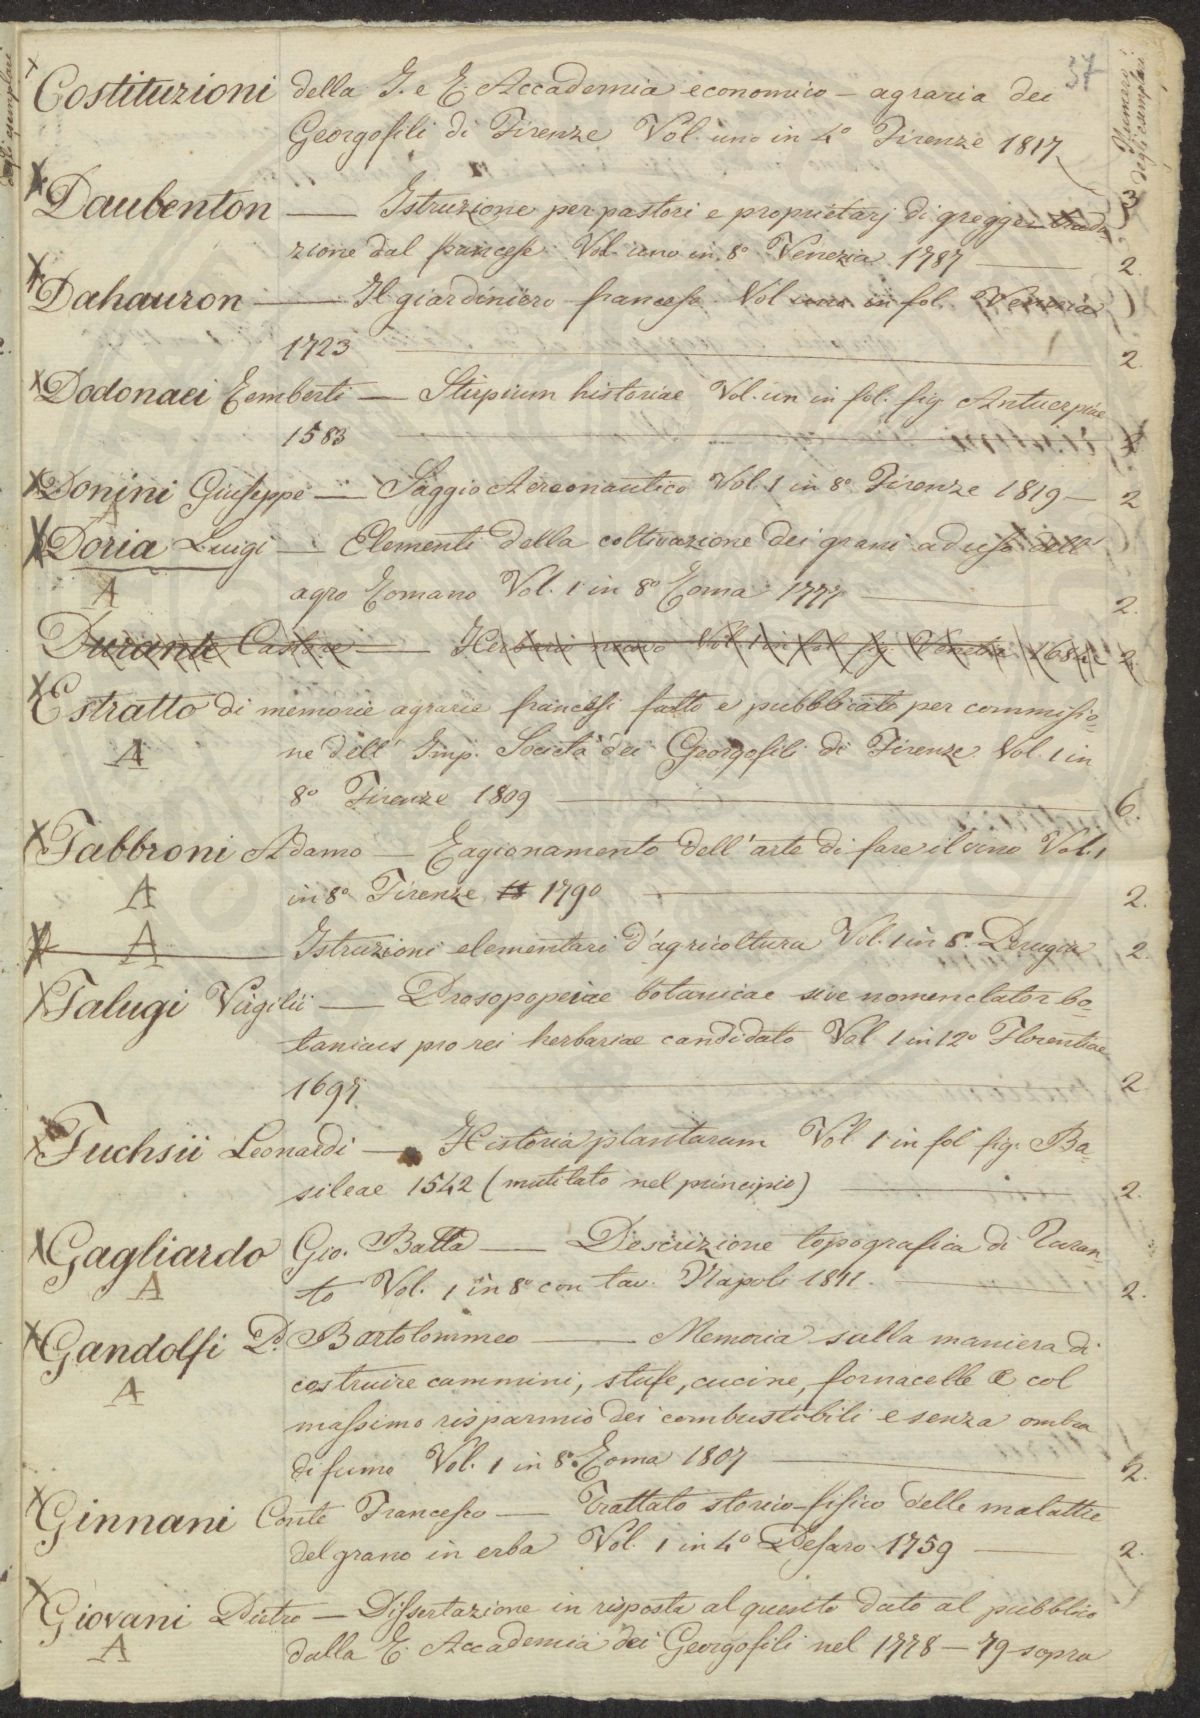 57
Numero degli esemplari
degli esemplari
Costituzioni della I. e R. Accademia economico - agraria dei
Georgofili di Firenze Vol. uno in 4° Firenze 1817
3
Daubenton — Istruzione per pastori e proprietarj di greggi tradu
zione dal francese Vol. uno in 8° Venezia 1787 — 2.
Dahauron — Il giardiniero francese Vol uno in fol. Venezia
1723 — 2
Dodonaei Remberti — Stirpium historiae Vol. un in fol. fig. Antuerpiae
1583
Donini Giuseppe — Saggio Aereonautico Vol. 1 in 8° Firenze 1819 — 2
A
Doria Luigi — Elementi della coltivazione dei grani ad uso dell'
A agro Romano Vol. 1 in 8° Roma 1777 — 2.
Durante Castore — Herbario nuovo Vol. 1 in fol fig. Venetia 1684 2
Estratto di memorie agrarie francesi fatto e pubblicato per commissio=
A ne dell' Imp. Società dei Georgofili di Firenze Vol. 1 in
8° Firenze 1809 — 6.
Fabbroni Adamo — Ragionamento dell'arte di fare il vino Vol. 1
A in 8° Firenze 18 1790 — 2.
A Istruzioni elementari d'agricoltura Vol. 1 in 8°. Perugia 2
Falugi Virgilii — Prosopopeiae botanicae sive nomenclator bo=
tanicus pro rei herbariae candidato Vol 1 in 12° Florentiae
1697 — 2
Fuchsii Leonardi — Historia plantarum Vol. 1 in fol fig. Ba=
sileae 1542 (mutilato nel principio) — 2.
Gagliardo Gio. Batta — Descrizione topografica di Taran=
A to Vol. 1 in 8° con tav. Napoli 1811. — 2.
Gandolfi D. Bartolommeo — Memoria sulla maniera di
A costruire cammini, stufe, cucine, fornacelle &c col
massimo risparmio dei combustibili e senza ombra
di fumo Vol. 1 in 8° Roma 1807 — 2.
Ginnani Conte Francesco — Trattato storico-fisico delle malattie
del grano in erba Vol. 1 in 4° Pesaro 1759 — 2.
Giovani Pietro — Dissertazione in risposta al quesito dato al pubblico
A dalla R. Accademia dei Georgofili nel 1778 - 79 sopra